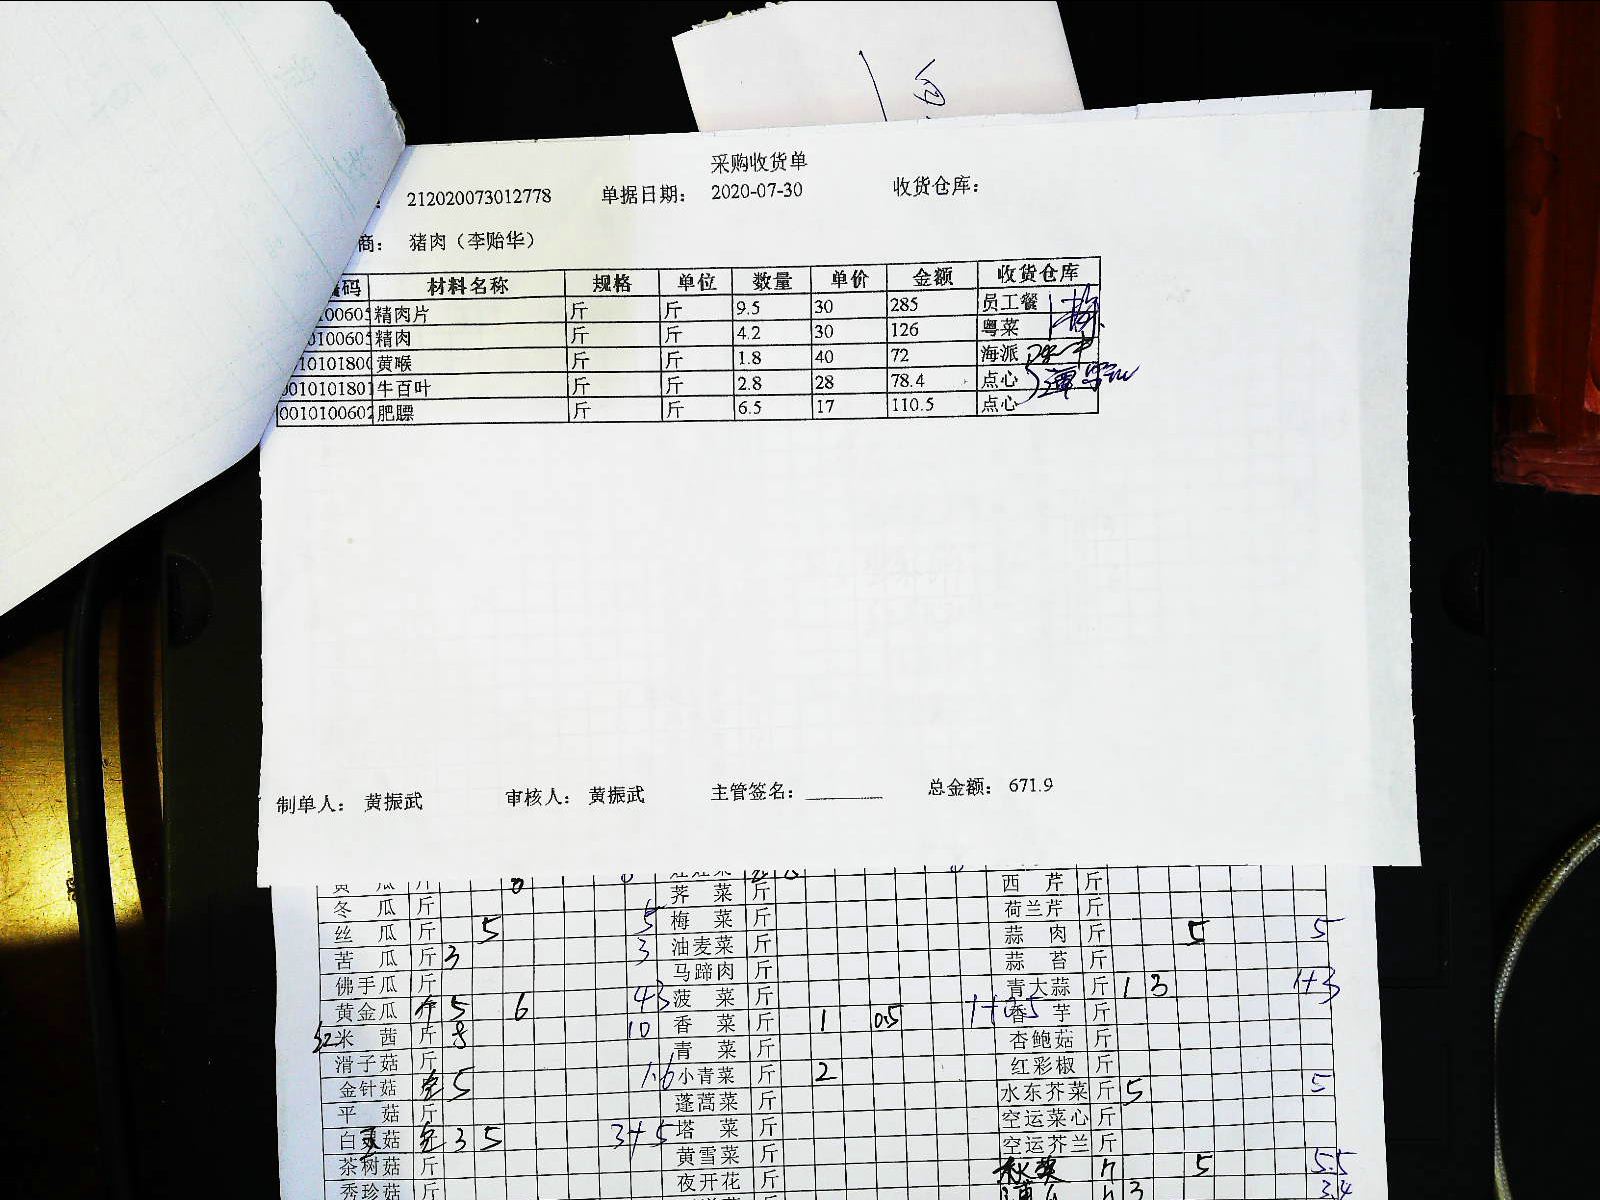 采购收货单
212020073012778 单据日期: 2020-07-30 收货仓库:
商: 猪肉(李贻华)
码 材料名称 规格 单位 数量 单价 金额 收货仓库
精肉片 斤 斤 9.5 30 285 员工餐
精肉 斤 斤 4.2 30 126 粤菜
黄喉 斤 斤 1.8 40 72 海派
牛百叶 斤 斤 2.8 28 78.4 点心
肥膘 斤 斤 6.5 17 110.5 点心
制单人: 黄振武 审核人: 黄振武 主管签名: 总金额: 671.9
黄 瓜 斤
荠 菜 斤 西 芹 斤
冬 瓜 斤 梅 菜 斤 荷兰芹 斤
丝 瓜 斤 5 5 油麦菜 斤 蒜 肉 斤 5 5
苦 瓜 斤 3 3 马蹄肉 斤 蒜 苔 斤
佛手瓜 斤 菠 菜 斤 青大蒜 斤 1 3 1+3
黄金瓜 5 6 香 菜 斤 1 0.5 香 芋 斤
米 茜 斤 8 10 青 菜 斤 杏鲍菇 斤
滑子菇 斤 小青菜 斤 2 红彩椒 斤
金针菇 5 1.6 蓬蒿菜 斤 水东芥菜 斤 5 5
平 菇 斤 塔 菜 斤 空运菜心 斤
白灵菇 3 5 3+5 黄雪菜 斤 空运芥兰 斤
茶树菇 斤 夜开花 斤 5 5.5
秀珍菇 斤 3 3.4